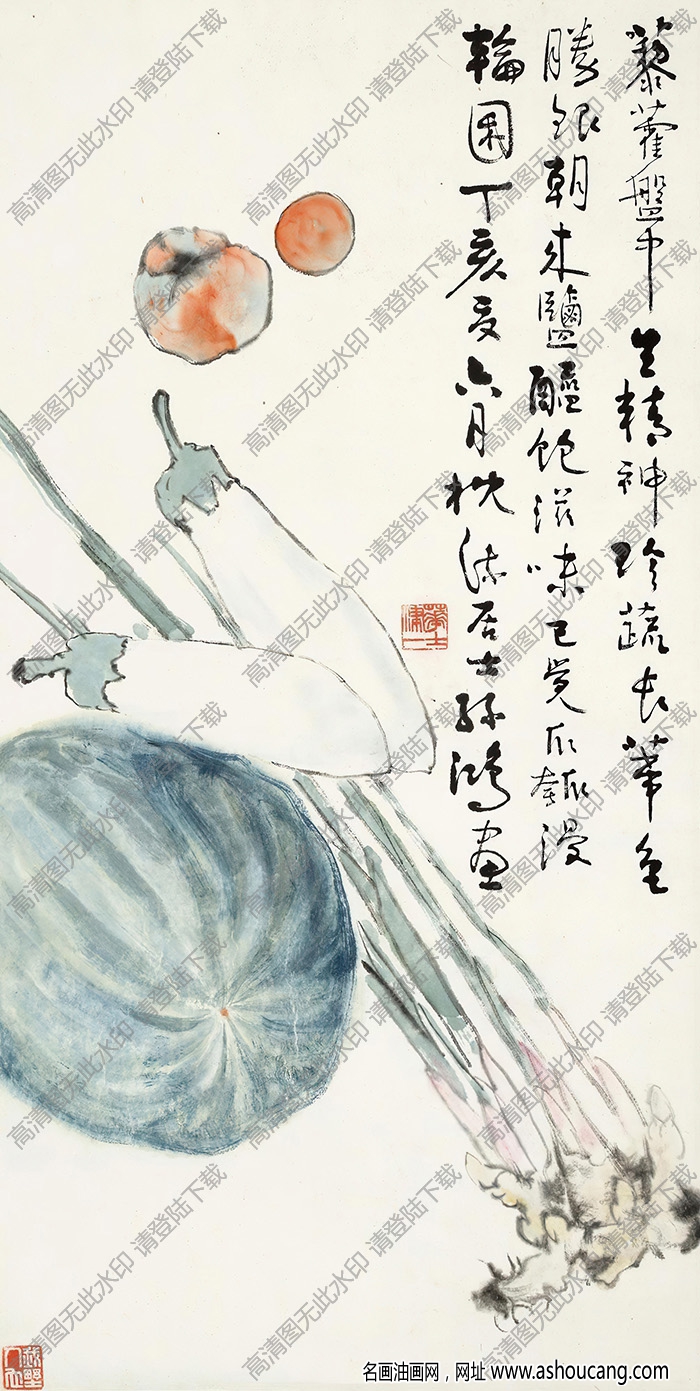 藜藿盤中生精神珍蔬長蒂色
勝銀朝来鹽醯飽滋味已覺瓜瓠漫
輪囷丁亥夏六月枕流居士孫鴻畫
高清图无此水印 请登陆下载
名画油画网，网址 www.ashoucang.com